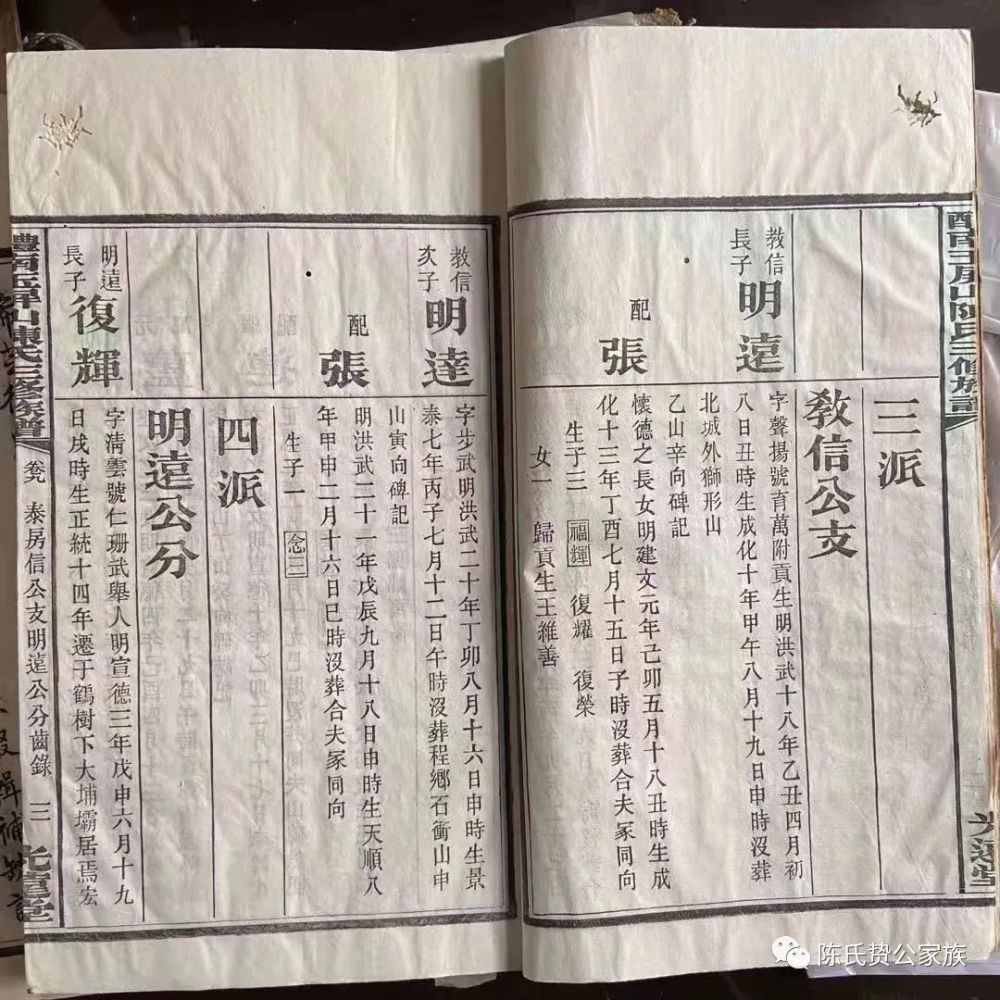 三派
教信公支
教信
長子
明遠
字聲揚號育萬附貢生明洪武十八年乙丑四月初
八日丑時生成化十年甲午八月十九日申時沒葬
北城外獅形山
乙山辛向碑記
配
張
懷德之長女明建文元年己卯五月十八丑時生成
化十三年丁酉七月十五日子時沒葬合夫冢同向
生子三 福輝 復耀 復榮
女一 歸貢生王維善
教信
次子
明達
字步武明洪武二十年丁卯八月十六日申時生景
泰七年丙子七月十二日午時沒葬程鄉石衝山申
山寅向碑記
配
張
明洪武二十一年戊辰九月十八日申時生天順八
年甲申二月十六日巳時沒葬合夫冢同向
生子一 念三
四派
明遠公分
明遠
長子
復輝
字清雲號仁珊武舉人明宣德三年戊申六月十九
日戌時生正統十四年遷于鶴樹下大埔壩居焉宏
豊南玉屏山陳氏三修族譜
卷九 泰房信公支明遠公分齒錄 三
陈氏贽公家族